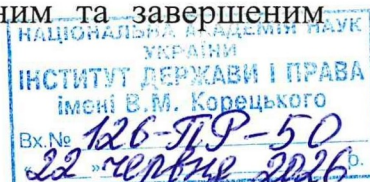 ним та завершеним
НАЦІОНАЛЬНА АКАДЕМІЯ НАУК
УКРАЇНИ
ІНСТИТУТ ДЕРЖАВИ І ПРАВА
імені В.М. Корецького
Вх.№ 126-ПР-50
„22 „ червня 2026 р.